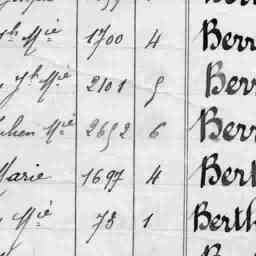 Jh Mié 1700 4 Berr
Jh Mié 2101 5 Berr
ulien Mié 2652 6 Berr
Marie 1697 4 Bert
Mié 78 1 Berth